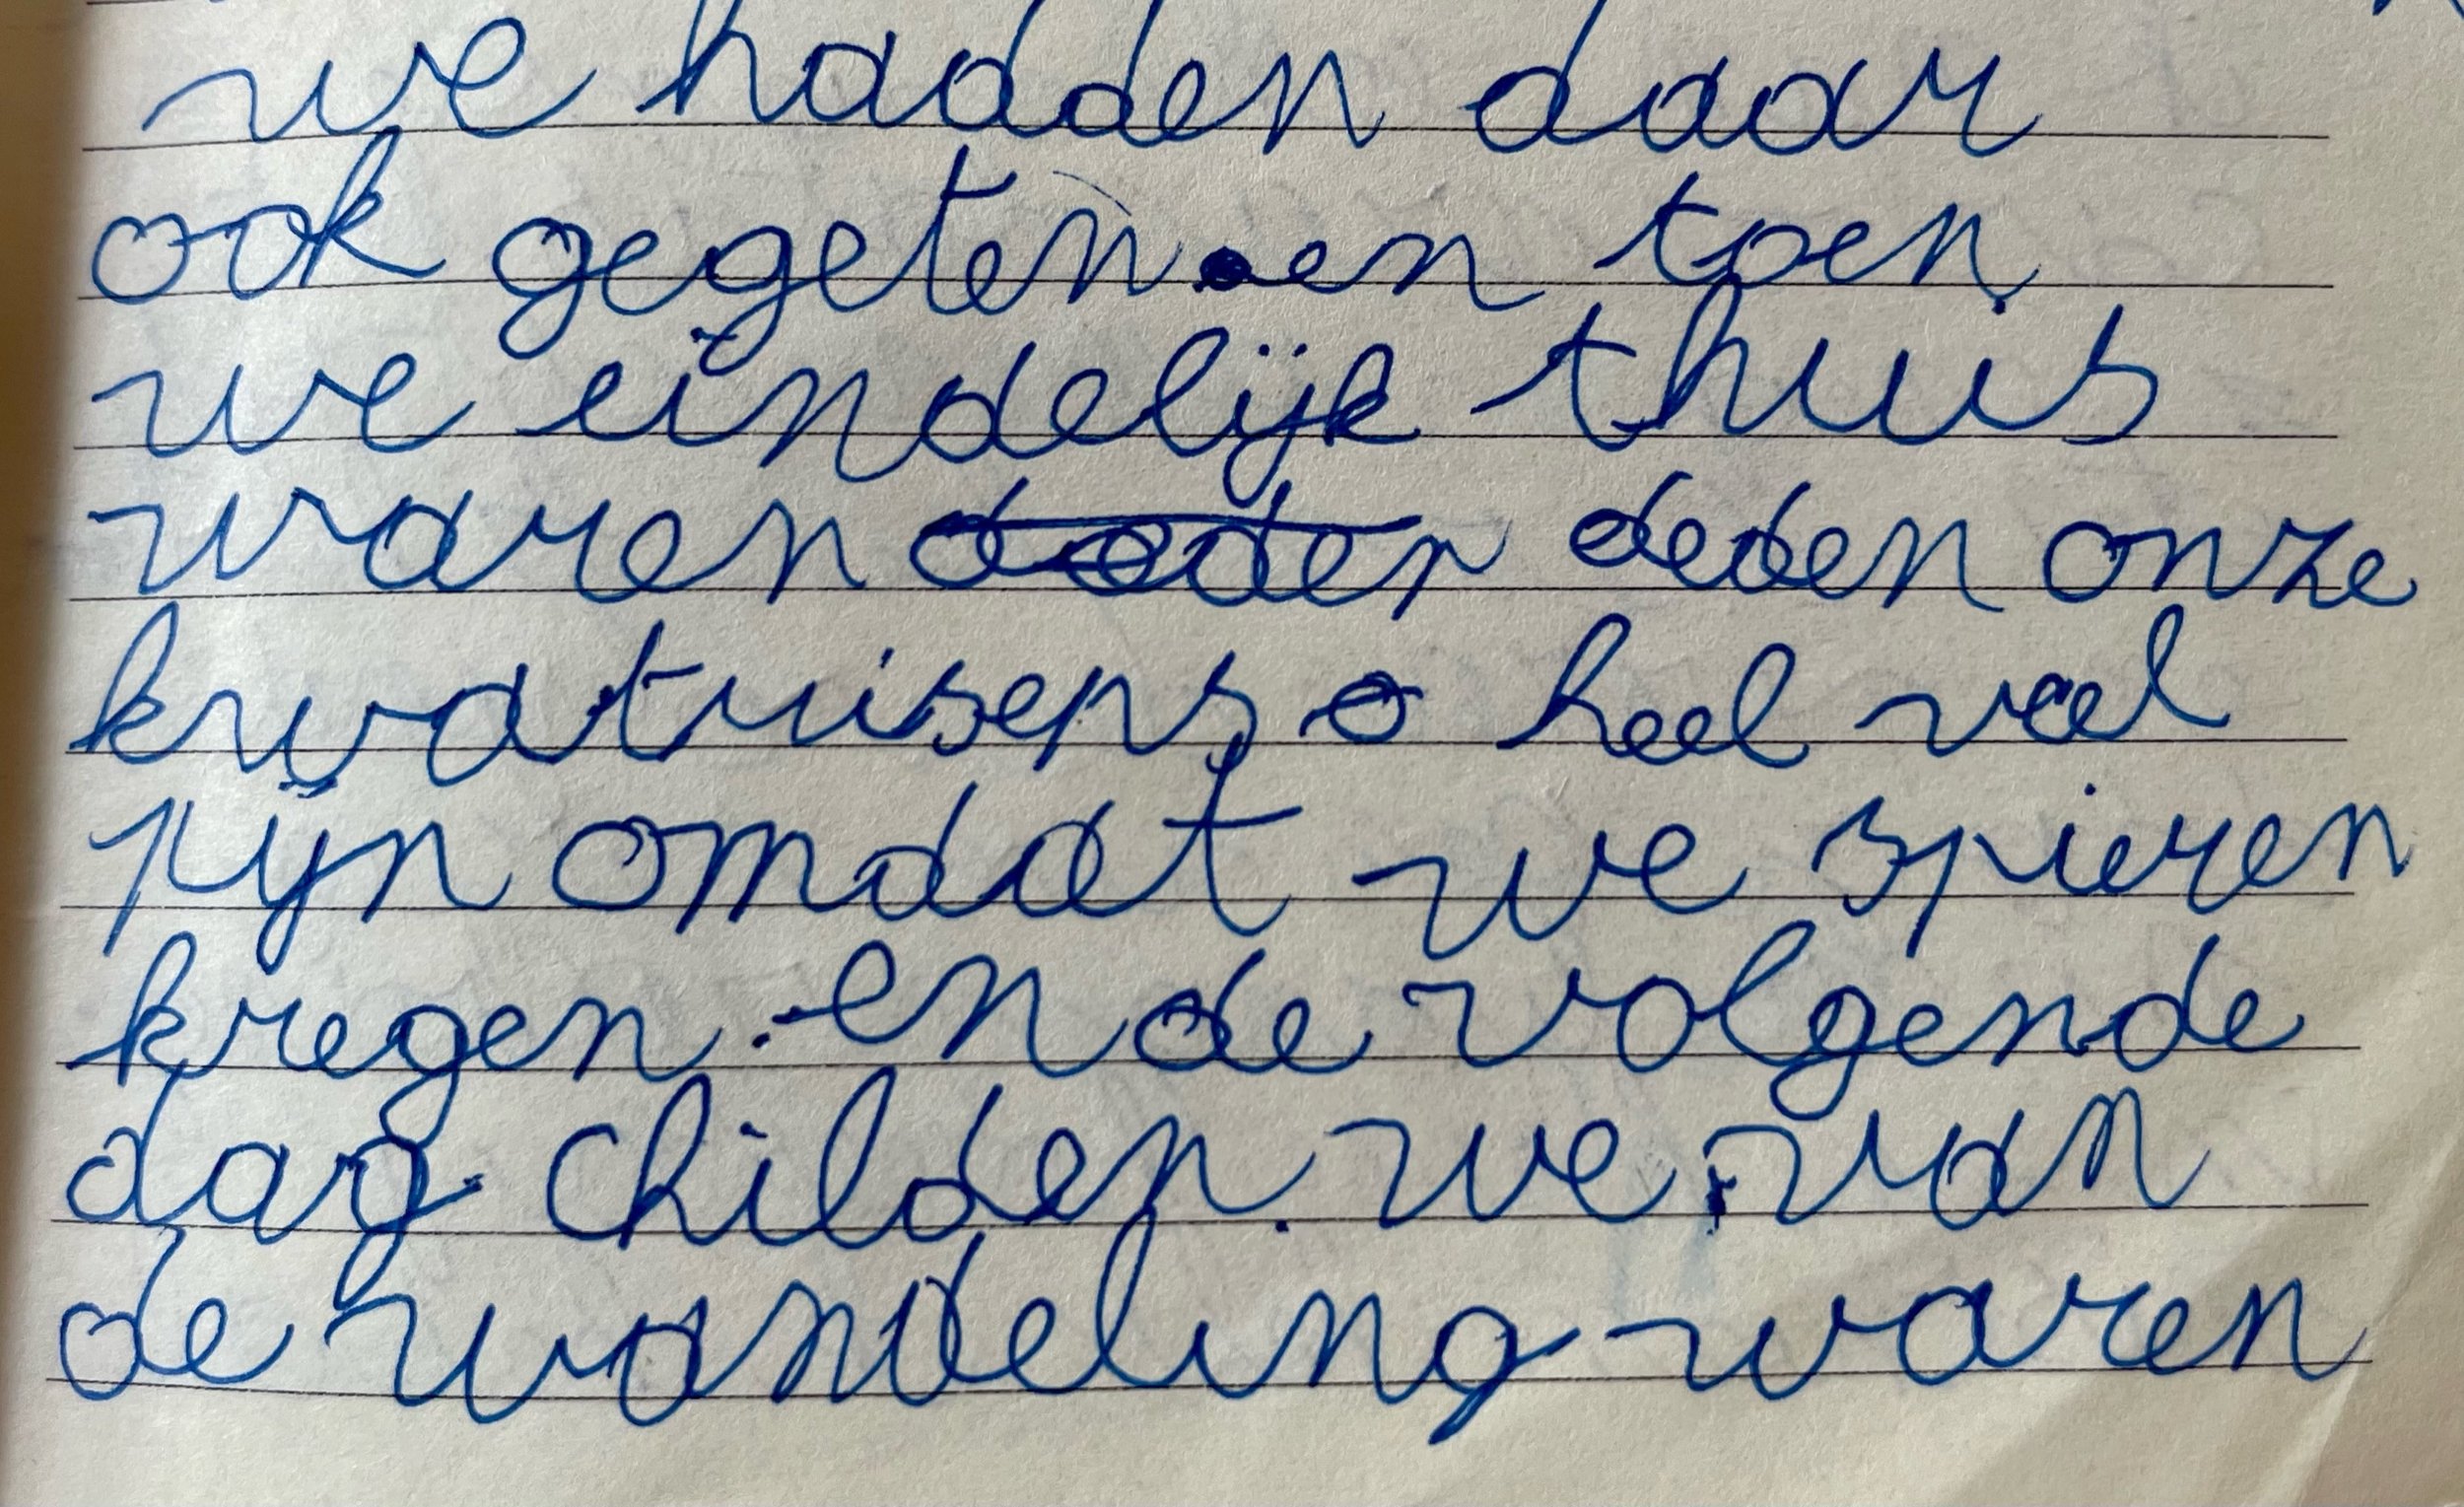 we hadden daar
ook gegeten. en toen
we eindelijk thuis
waren deden onze
kwatuiseps o heel veel
pijn omdat we spieren
kregen. en de volgende
dag childen. we van
de wandeling waren